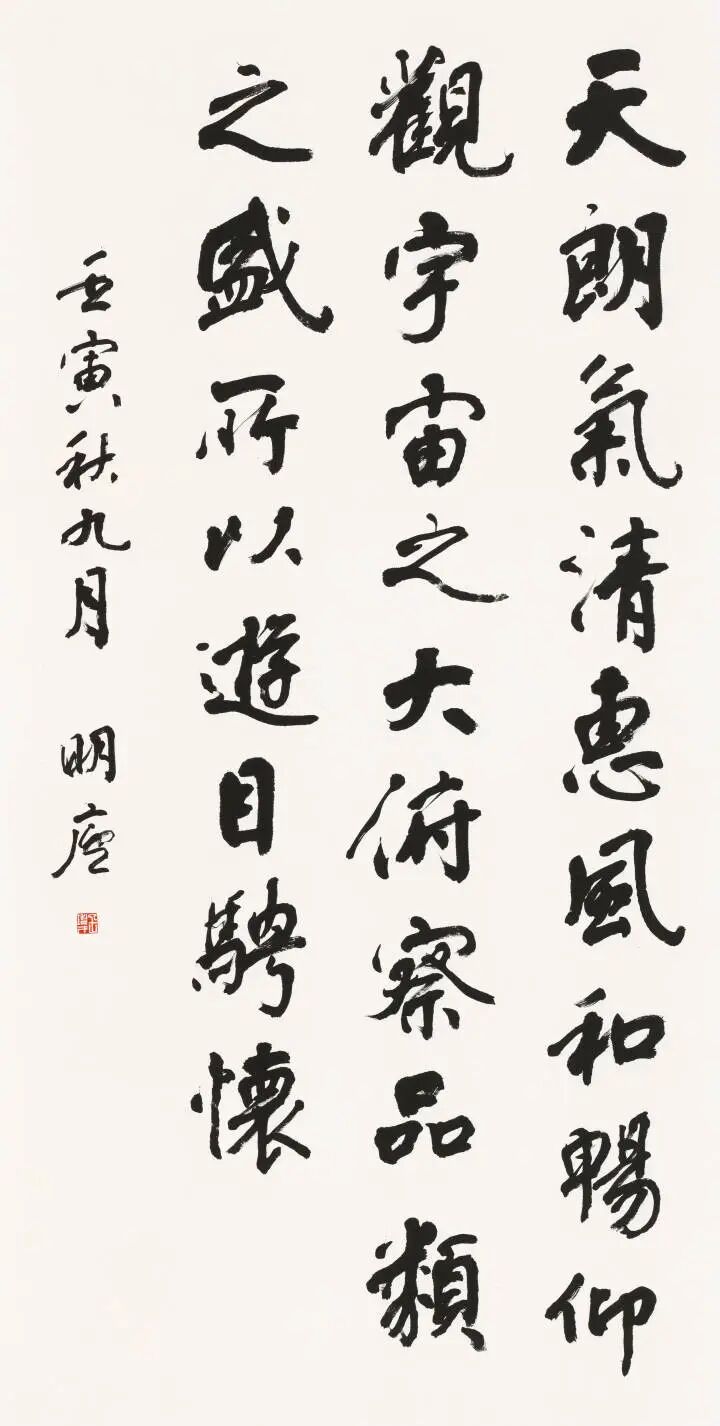 天朗氣清惠風和暢仰
觀宇宙之大俯察品類
之盛所以遊目騁懷
壬寅秋九月 明廬